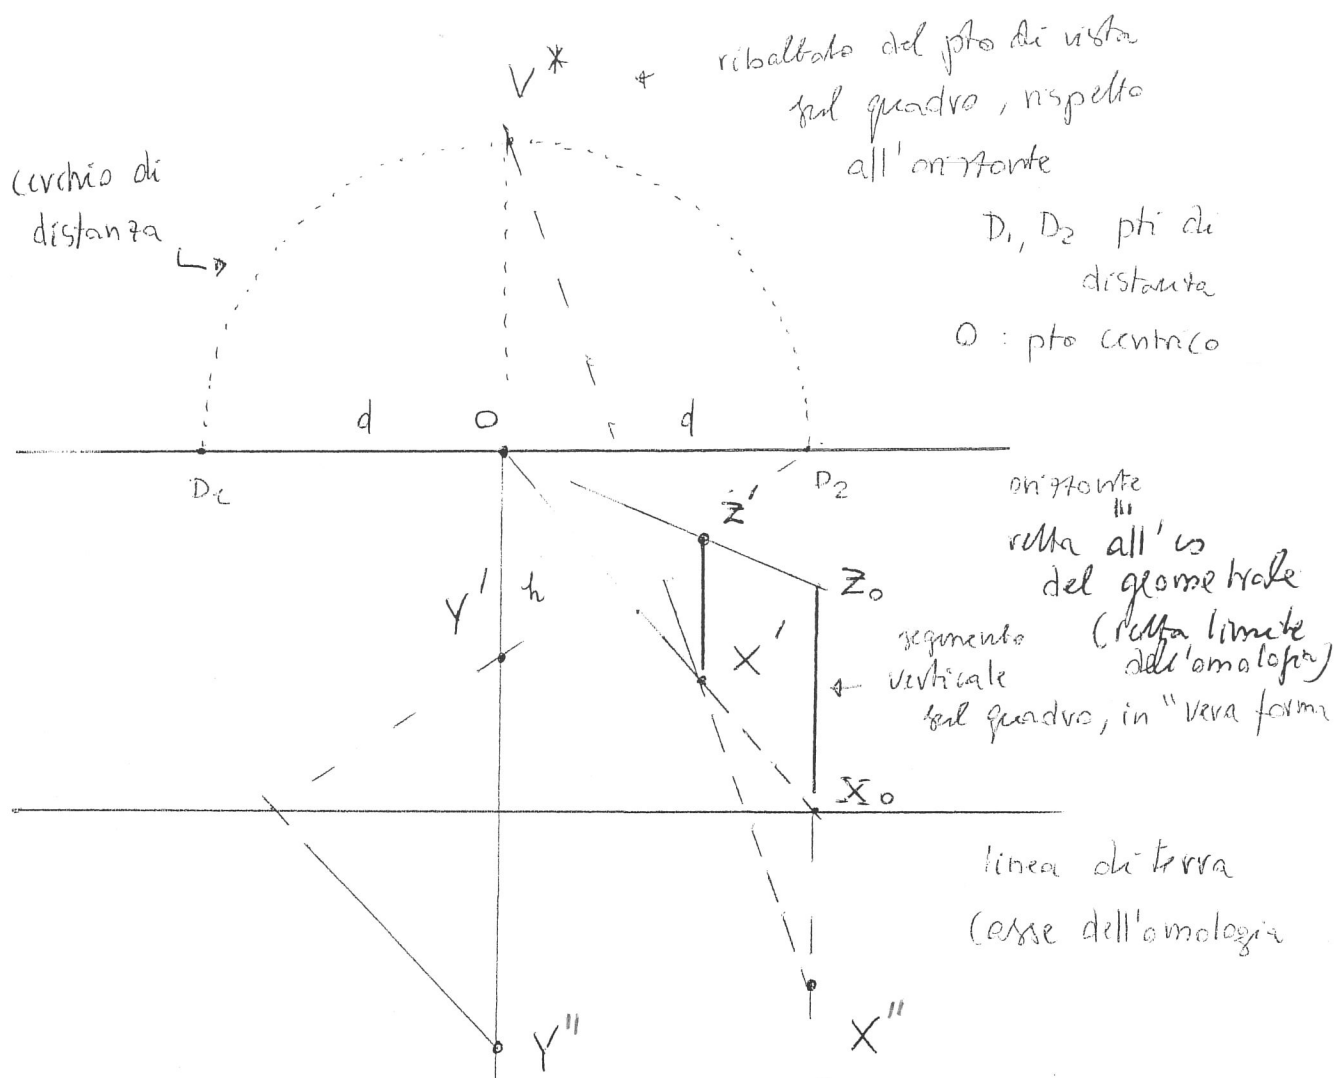 V*
← ribaltato del pto di vista
sul quadro, rispetto
all'orizzonte
cerchio di
distanza
D₁, D₂ pti di
distanza
O : pto centrico
d
O
d
D₁
D₂
orizzonte
≡
retta all'∞
del geometrale
(retta limite
dell'omologia)
Z'
Z₀
Y'
h
X'
segmento
← verticale
sul quadro, in "vera forma
X₀
linea di terra
(asse dell'omologia
Y"
X"